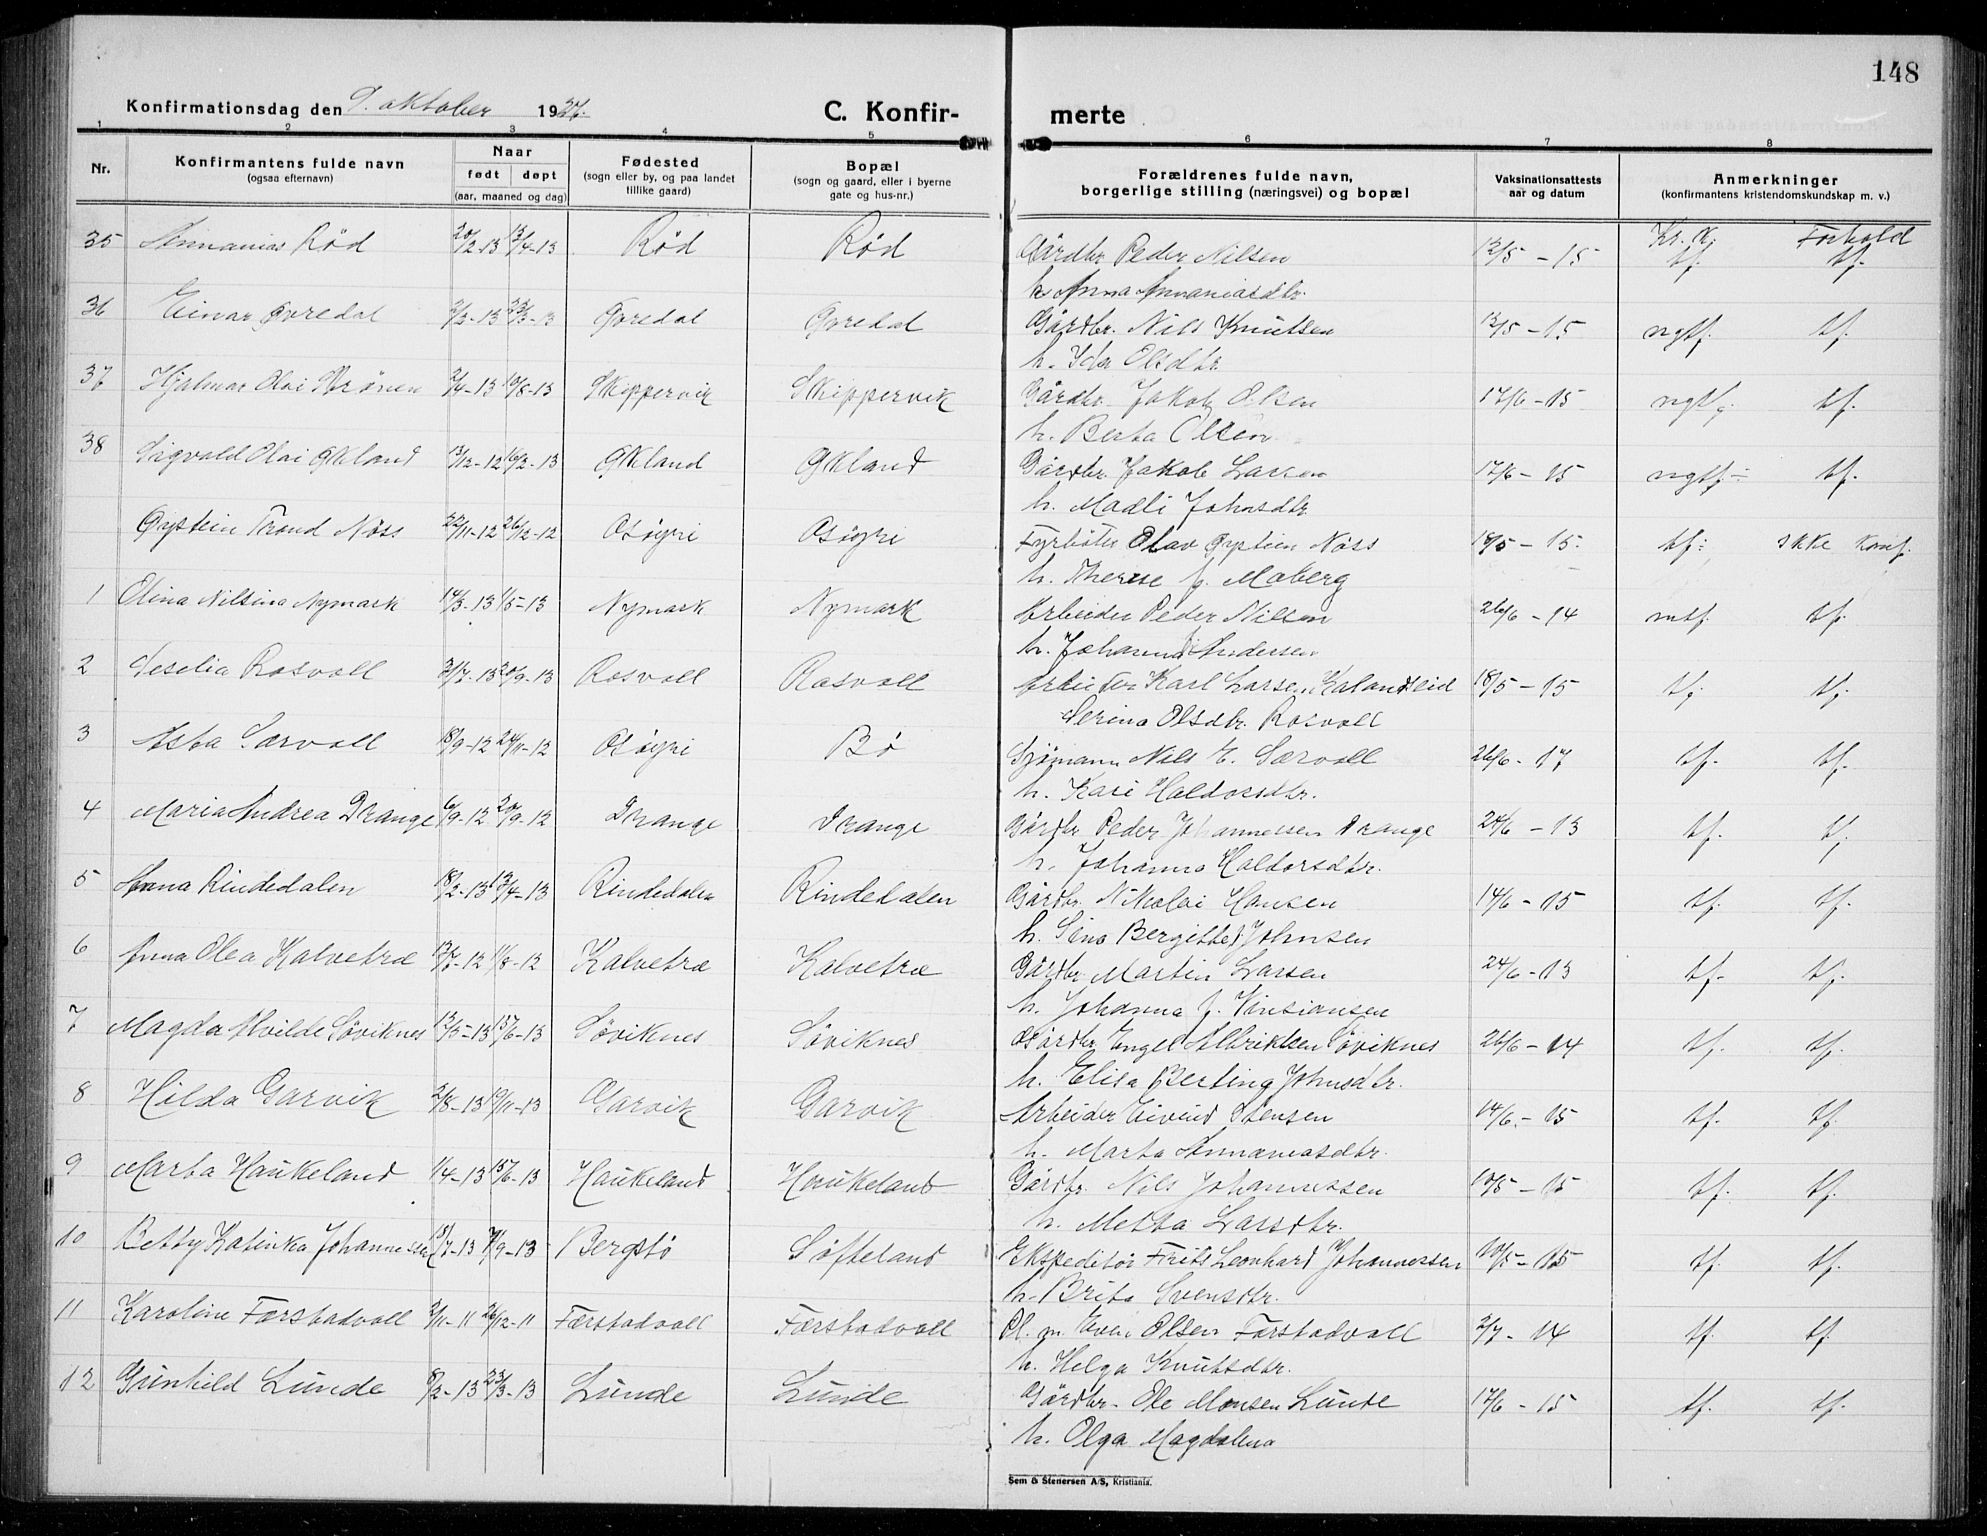 148
Konfirmationsdag den 9. oktober 1927.
C. Konfir- merte
1 2 3 4 5 6 7 8
Nr. Konfirmantens fulde navn (ogsaa efternavn) Naar født døpt (aar, maaned og dag) Fødested (sogn eller by, og paa landet tillike gaard) Bopæl (sogn og gaard, eller i byerne gate og hus-nr.) Forældrenes fulde navn, borgerlige stilling (næringsvei) og bopæl Vaksinationsattests aar og datum Anmerkninger (konfirmantens kristendomskundskap m. v.)
Kr. k. Forhold
35 Annanias Rød 20/2-13 13/4-13 Rød Rød Gårdbr Peder Nilsen 12/5-15 tf. tf.
h. Anna Annaniasdtr.
36 Einar Øvredal 2/2-13 23/3-13 Øvredal Øvredal Gårdbr. Nils Knutsen 12/5-15 ngtf. tf.
h. Ida Olsdtr
37 Hjalmar Olai 2/4-13 10/8-13 Skippervik Skippervik Gårdbr Jakob Olsen 17/6-15 ngtf. tf.
h. Berta Olsen
38 Sigvald Olai Økland 13/12-12 16/2-13 Økland Økland Gårdbr Jakob Larsen 17/6-15 ngtf tf.
h. Madli Johnsdtr
Øystein Trond Næss 22/11-12 26/12-12 Osøyri Osøyri Fyrbøter Olav Øystein Næss 18/5-15 tf. ikke konf.
h. Therese f. Moberg
1 Olina Nilsina Nymark 14/3-13 1/5-13 Nymark Nymark Arbeider Peder Nilsen 26/6-14 mtf. tf.
h. Johanna Andersen
2 Seselia Rosvoll 3/7-13 20/9-13 Rosvoll Rosvoll Arbeider Karl Larsen Kalandseid 18/5-15 tf. tf.
Serina Olsdtr. Rosvoll
3 Asta Særvoll 18/9-12 24/11-12 Osøyri Bø Sjømann Nils E. Særvoll 26/6-17 tf. tf.
h. Kari Haldorsdtr.
4 Maria Andrea Drange 6/9-12 20/9-12 Drange Drange Gårdbr Peder Johannessen Drange 24/6-13 tf. tf
h. Johanna Haldorsdtr.
5 Anna Rindedalen 18/2-13 13/4-13 Rindedalen Rindedalen Gårdbr. Nikolai Hansen 14/6-15 tf. tf.
h. Sina Bergitte Johnsen
6 Anna Olea Kalvetræ 13/7-12 11/8-12 Kalvetræ Kalvetræ Gårdbr Martin Larsen 24/6-13 tf. tf.
h. Johanna f. Vinsiansen
7 Magda Alvilde Søviknes 12/5-13 15/6-13 Søviknes Søviknes Gårdbr Engel Albriktsen Søviknes 26/6-14 tf. tf.
h. Elisa Berting Johnsdtr.
8 Hilda Garvik 2/8-13 9/11-13 Garvik Garvik Arbeider Eivind Stensen 14/6-15 tf. tf.
h. Marta Annaniasdtr.
9 Marta Haukeland 1/4-13 15/6-13 Haukeland Haukeland Gårdbr Nils Johannessen 10/5-15 tf. tf.
h. Metta Larsdtr.
10 Betty Katinka Johannessen 15/7-13 7/9-13 Bergstø Søfteland Ekspeditør Frits Leonhard Johannessen 10/5-15 tf. tf.
h. Brita Svensdtr.
11 Karoline Færstadvoll 2/11-11 26/12-11 Færstadvoll Færstadvoll Pl. m. Even Olsen Færstadvoll 2/7-14 tf. tf
h. Helga Knutsdtr.
12 Gunhild Lunde 8/2-13 23/3-13 Lunde Lunde Gårdbr. Ole Monsen Lunde 17/6-15 tf. tf.
h. Olga Magdalena
Sem & Stenersen A/S, Kristiania.